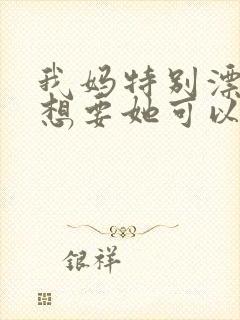 我妈特别漂
想要她可以
银祥